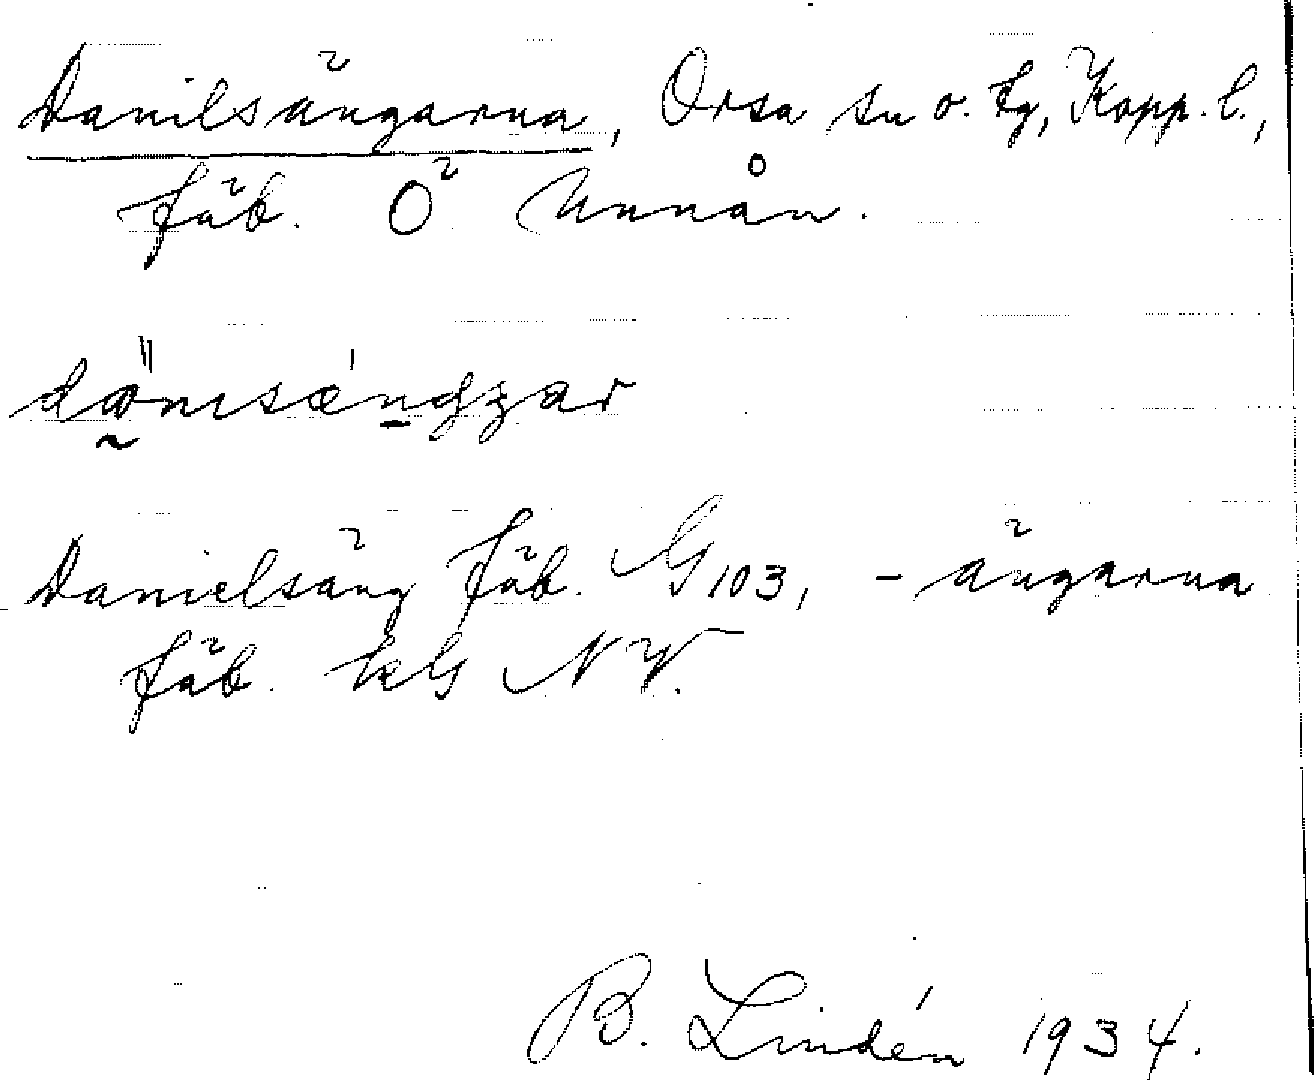 Danilsängarna, Orsa sn o. tg, Kopp. l.,
fäb. Ö Unnån.
Danielsäng fäb. G 103, - ängarna
fäb. kbl NV.
B. Lindén 1934.